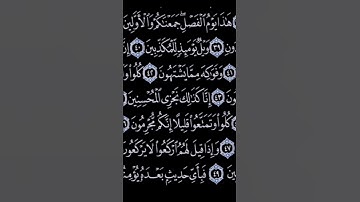 هَٰذَا يَوْمُ ٱلْفَصْلِ ۖ جَمَعْنَٰكُمْ وَٱلْأَوَّلِينَ
ونِ ٣٩ وَيْلٌ يَوْمَئِذٍ لِّلْمُكَذِّبِينَ ٤٠ إِنَّ
٤١ وَفَوَٰكِهَ مِمَّا يَشْتَهُونَ ٤٢ كُلُوا۟ وَ
٤٣ إِنَّا كَذَٰلِكَ نَجْزِى ٱلْمُحْسِنِينَ
كُلُوا۟ وَتَمَتَّعُوا۟ قَلِيلًا إِنَّكُم مُّجْرِمُونَ
٤٧ وَإِذَا قِيلَ لَهُمُ ٱرْكَعُوا۟ لَا يَرْكَعُونَ
ينَ ٤٩ فَبِأَىِّ حَدِيثٍۭ بَعْدَهُۥ يُؤْمِنُ